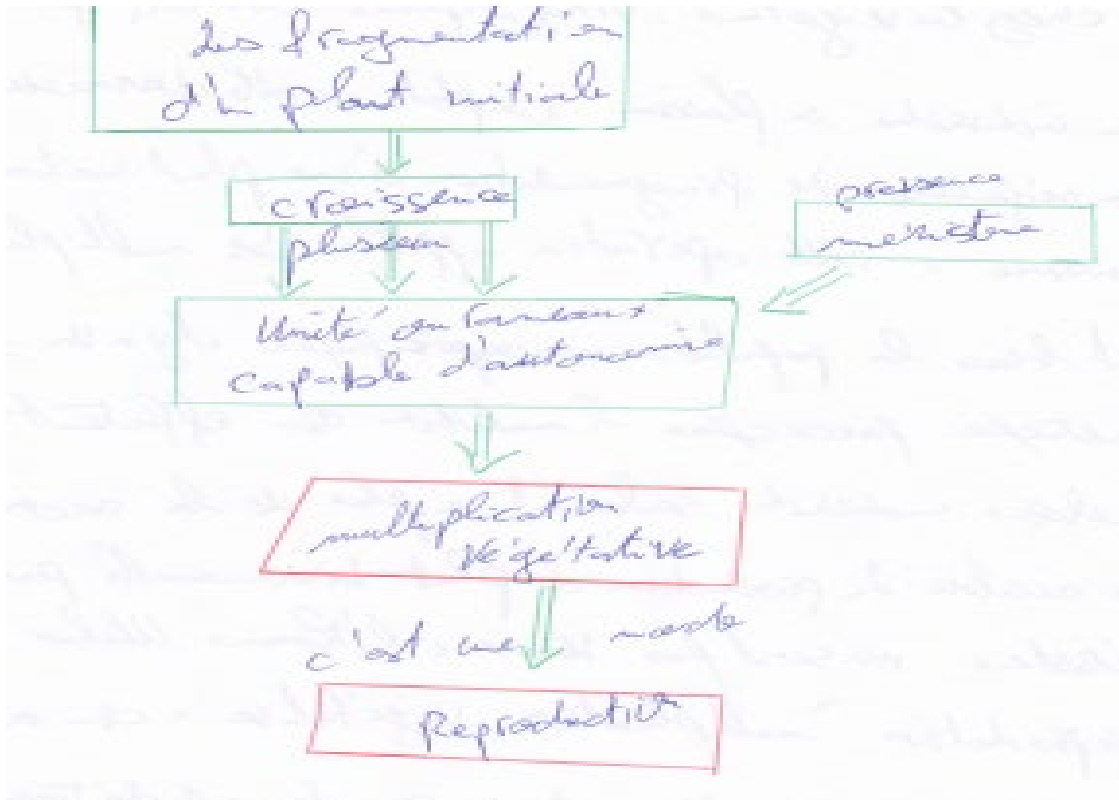 des fragmentation
d'un plant initiale
croissence
plusieur
pressence
meristeme
Unité ou rameaux
capable d'autonomie
multiplication
végétative
c'est une
Reproduction